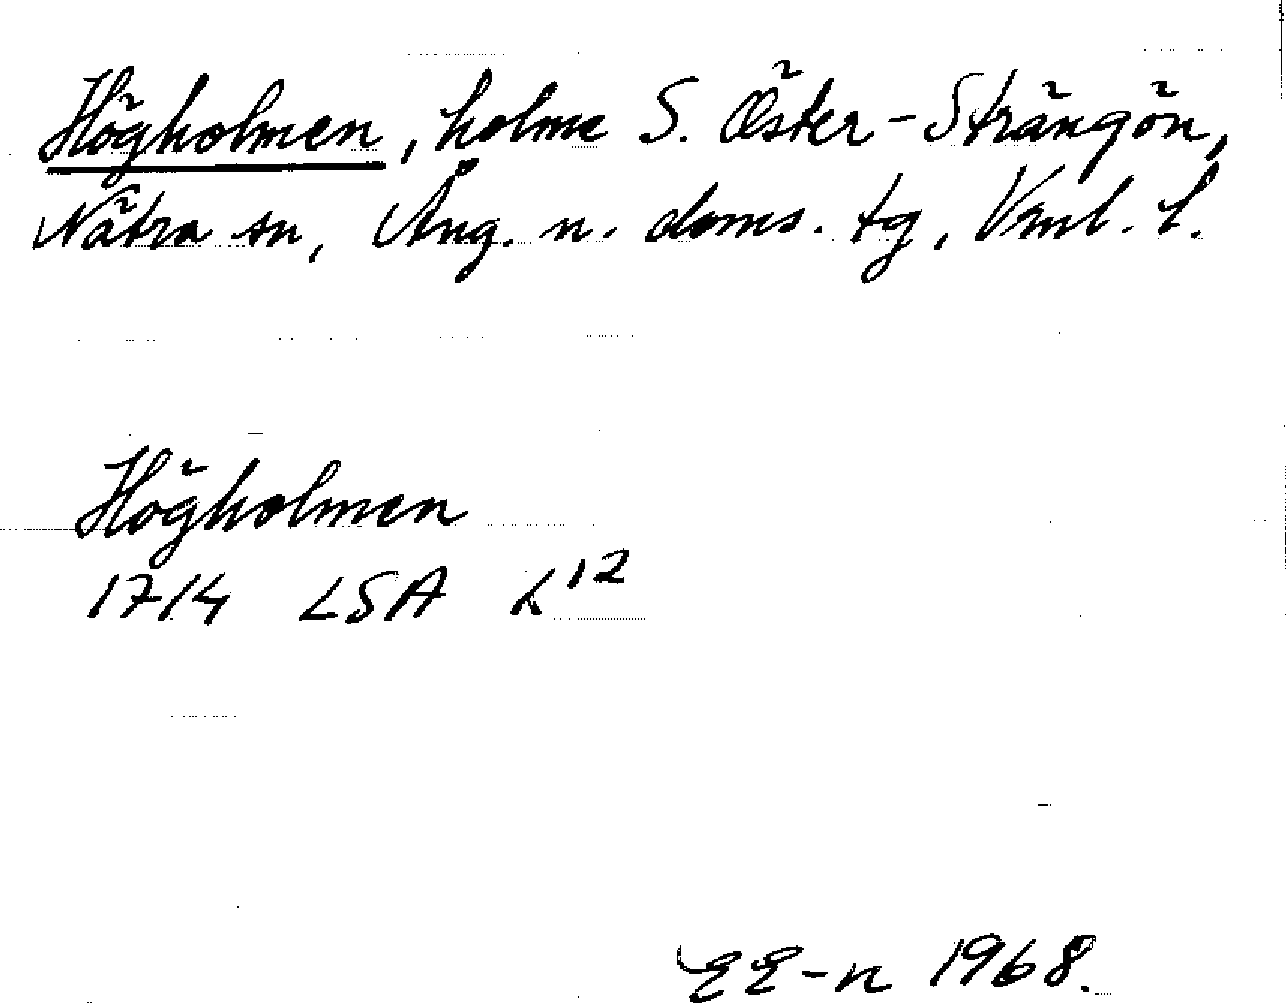 Högholmen, holme S. Öster-Strängön,
Nätra sn, Ång. n. doms. tg, Vnl. l.
Högholmen
1714 LSA K¹²
EE-n 1968.